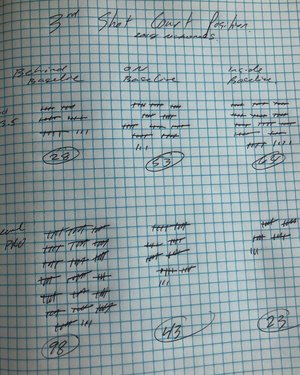 3rd Shot Court Position.
numbers.
Behind ON Inside
Baseline Baseline Baseline
3.5
28 53 69
PRO
98 43 23